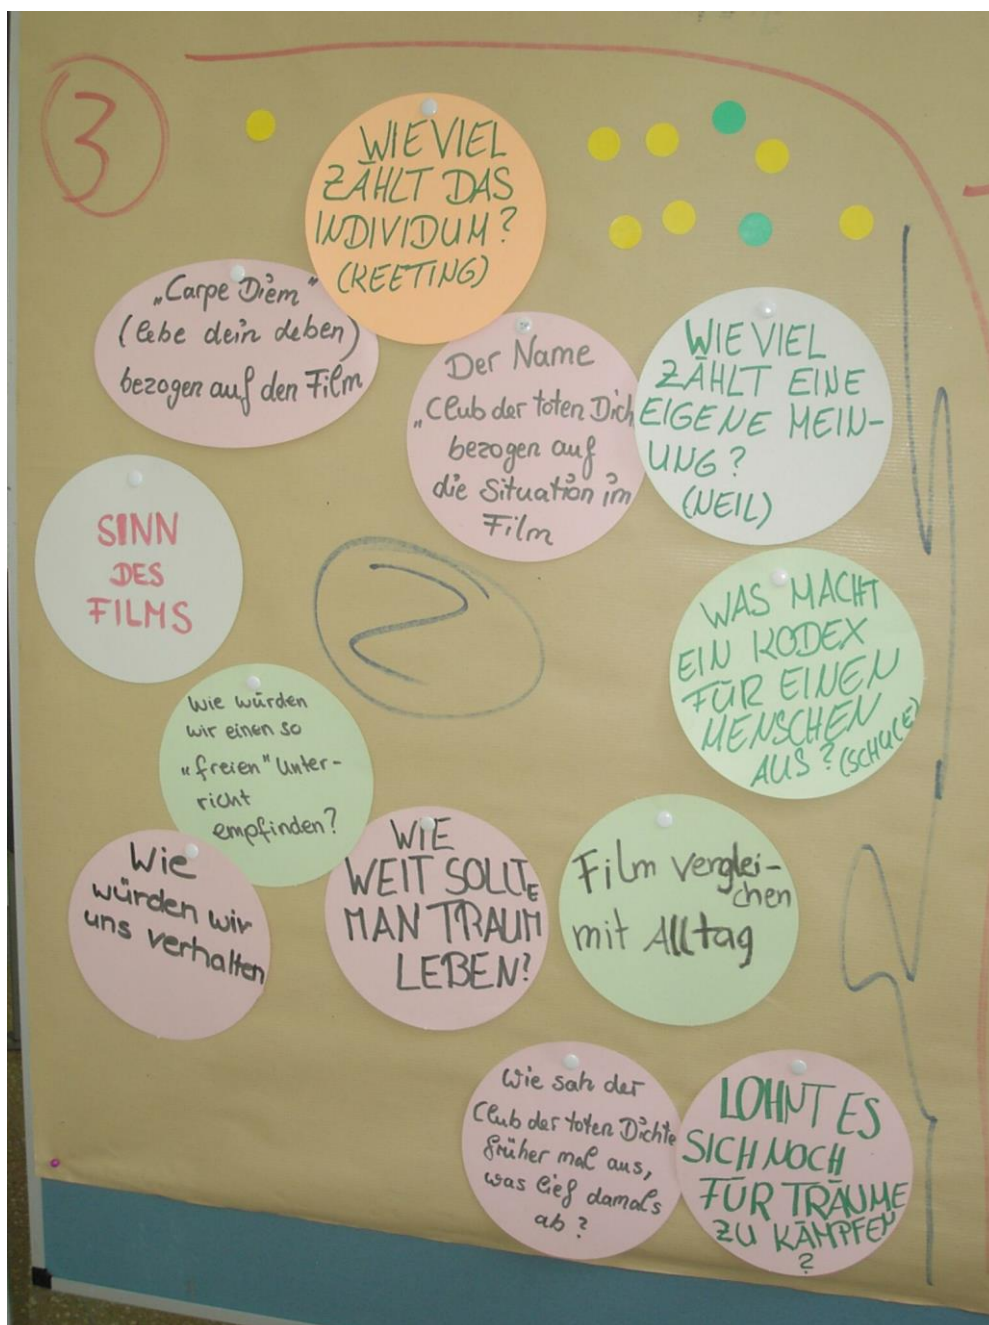 3
WIEVIEL
ZÄHLT DAS
INDIVIDUM?
(KEETING)
„Carpe Diem"
(lebe dein Leben)
bezogen auf den Film
Der Name
„Club der toten Dich
bezogen auf
die Situation im
Film
WIEVIEL
ZÄHLT EINE
EIGENE MEIN-
UNG?
(NEIL)
SINN
DES
FILMS
2
WAS MACHT
EIN KODEX
FÜR EINEN
MENSCHEN
AUS? (SCHULE)
Wie würden
wir einen so
„freien" Unter-
richt
empfinden?
Wie
würden wir
uns verhalten
WIE
WEIT SOLLTE
MAN TRAUM
LEBEN?
Film verglei-
chen
mit Alltag
Wie sah der
Club der toten Dichte
früher mal aus,
was lief damals
ab?
LOHNT ES
SICH NOCH
FÜR TRÄUME
ZU KÄMPFEN
?